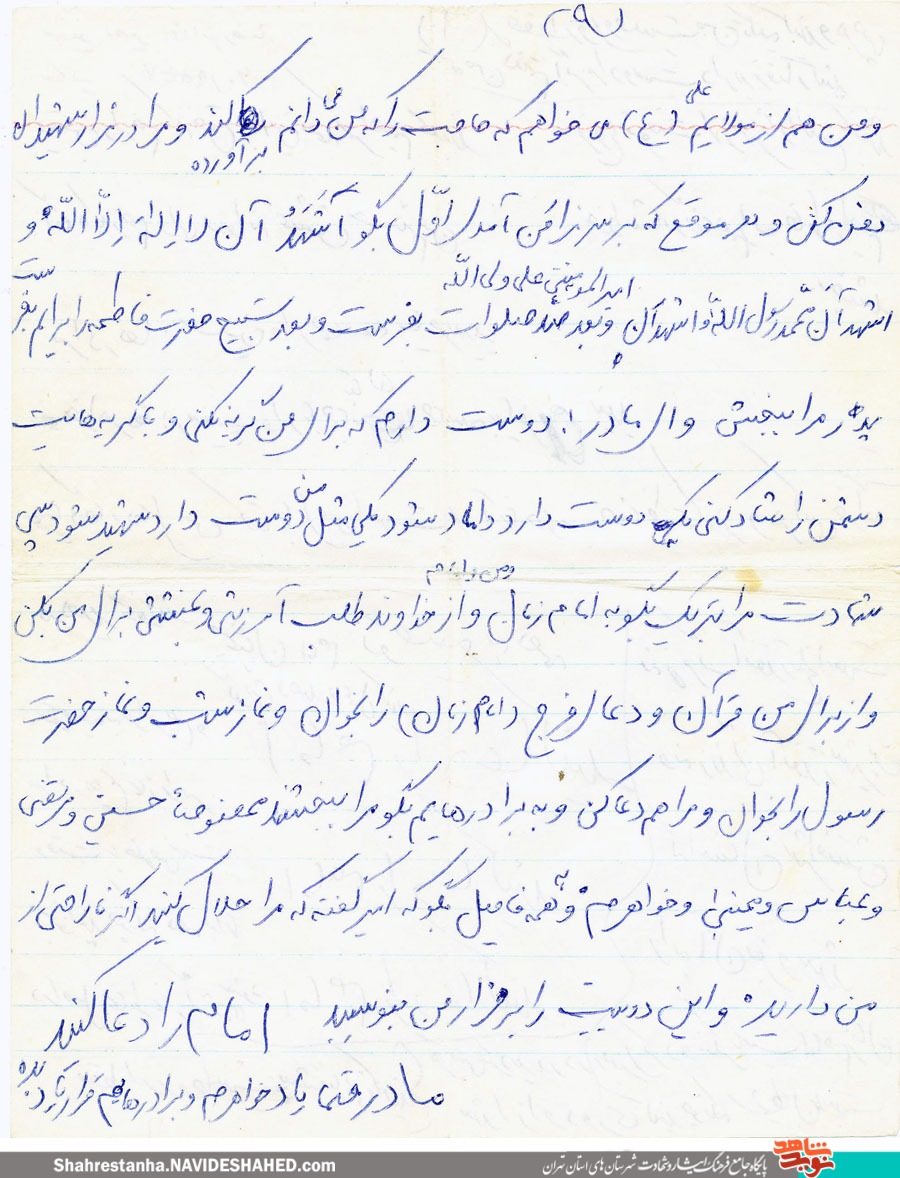 ومن هم از مولایم علی (ع) می خواهم که حاجت را که من می دانم برآورده کند و مرا در گلزار شهیدان
دفن کن و هر موقع که بر سر مزار من آمدی اوّل بگو اَشْهَدُ اَن لا اِلهَ اِلاّ اللّه و
اشهد اَنَّ محمد رسول الله و اشهد ان امیرالمومنین علی ولی الله و بعد صد صلوات بفرست و بعد تسبیح حضرت فاطمه را برایم بفرست
پدر مرا ببخش وای مادر! دوست دارم که برای من گریه نکنی و با گریه هایت
دشمن را شاد کنی یکی دوست دارد داماد شود یکی مثل من دوست دارد شهید شود پس
شهادت مرا تبریک بگو به امام زمان و از خداوند طلب آمرزش و بخشش برای من بکن
و از برای من قرآن و دعای فرج (امام زمان) را بخوان و نماز شب و نماز حضرت
رسول را بخوان و مرا هم دعا کن و به برادرهایم بگو مرا ببخشند مخصوصاً حسین و مرتضی
و عباس و مجتبی و خواهرم و به همه فامیل بگو که امیر گفته که مرا حلال کنید اگر ناراحتی از
من دارید و این دو بیت را بر مزار من بنویسید امام را دعا کنید
مادر حتما یاد خواهرم و برادرهایم قرآن یاد بده
Shahrestanha.NAVIDESHAHED.com
پایگاه جامع فرهنگ ایثار و شهادت شهرستان های استان تهران
نوید شاهد